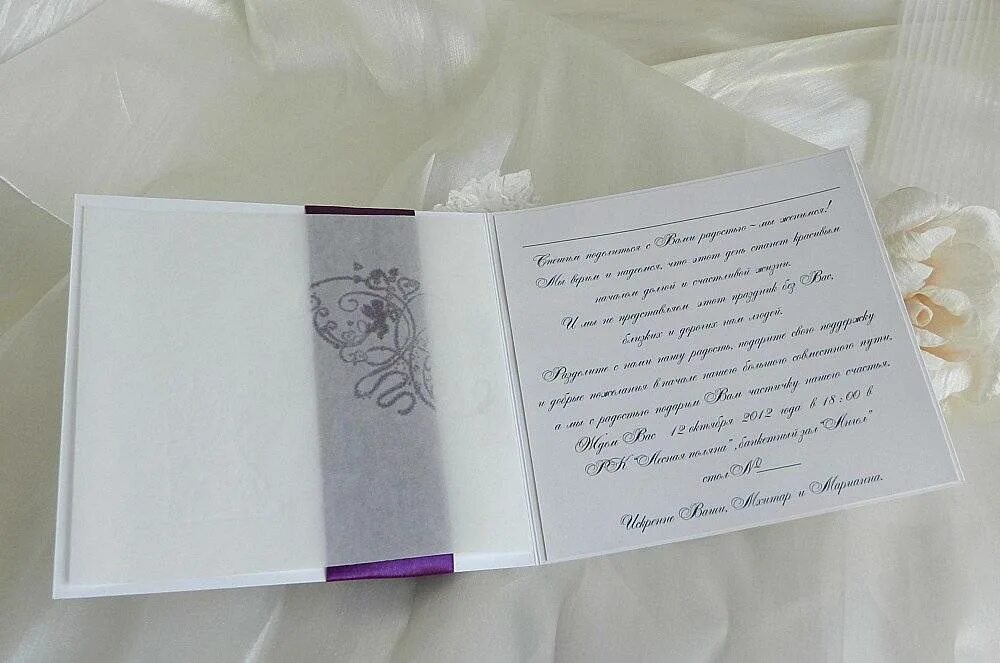 Спешим поделиться с Вами радостью - мы женимся!
Мы верим и надеемся, что этот день станет красивым
началом долгой и счастливой жизни.
И мы не представляем этот праздник без Вас,
близких и дорогих нам людей.
Разделите с нами нашу радость, подарите свою поддержку
и добрые пожелания в начале нашего большого совместного пути,
а мы с радостью подарим Вам частичку нашего счастья.
Ждем Вас 12 октября 2012 года в 18:00 в
РК "Лесная поляна", банкетный зал "Ангел"
стол №____
Искренне Ваши, Мхитар и Марианна.